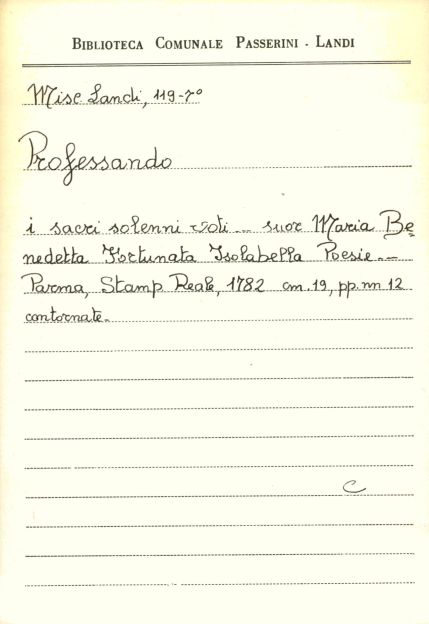 BIBLIOTECA COMUNALE PASSERINI - LANDI
Misc Landi, 119-7°
Professando
i sacri solenni voti... suor Maria Be=
nedetta Fortunata Isolabella Poesie...
Parma, Stamp Reale, 1782 cm. 19, pp. nn 12
contornate.
C